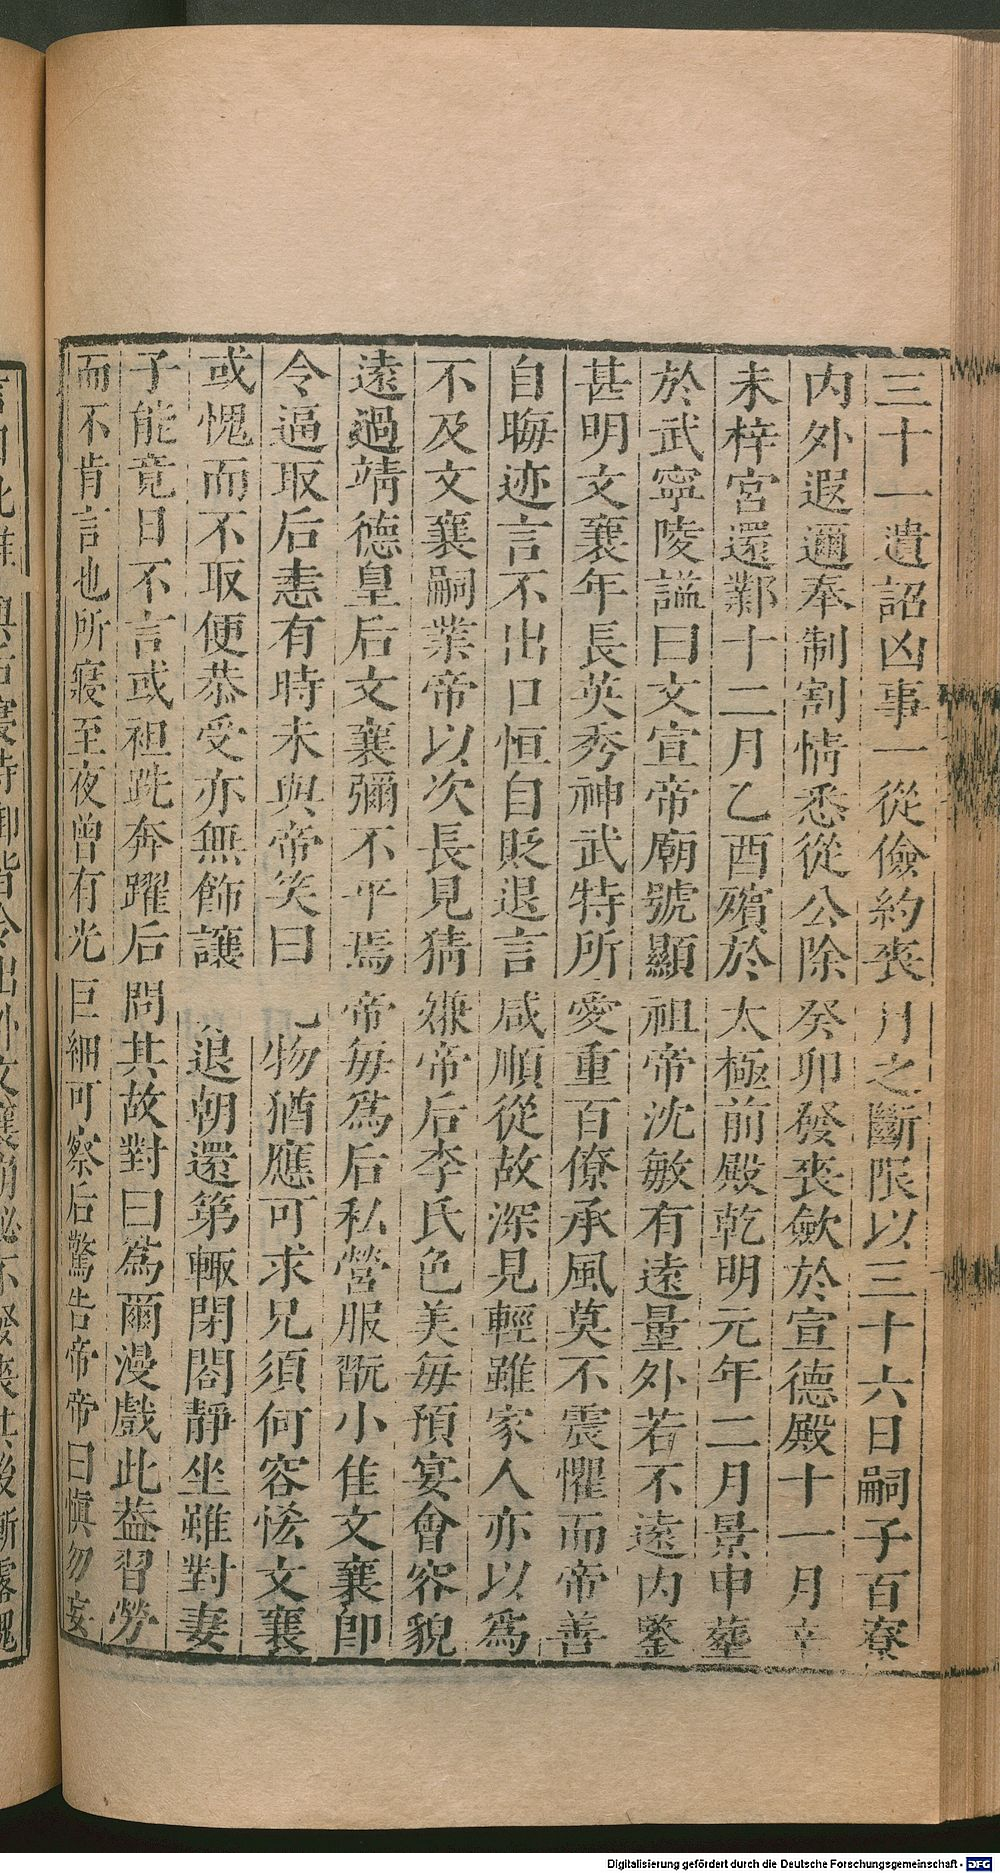 三十一遺詔凶事一從儉約喪月之斷限以三十六日嗣子百寮
内外遐邇奉制割情悉從公除癸卯發喪歛於宣德殿十一月辛
未梓宮還鄴十二月乙酉殯於太極前殿乾明元年二月景申葬
於武寧陵謚曰文宣帝廟號顯祖帝沈敏有遠量外若不遠内鑒
甚明文襄年長英秀神武特所愛重百僚承風莫不震懼而帝善
自晦迹言不出口恒自貶退言咸順從故深見輕雖家人亦以爲
不及文襄嗣業帝以次長見猜嫌帝后李氏色美毎預宴會容貌
遠過靖德皇后文襄彌不平焉帝毎爲后私營服翫小佳文襄即
令逼取后恚有時未與帝笑曰此物猶應可求兄須何容恡文襄
或愧而不取便恭受亦無飾讓退朝還第輒閉閤靜坐雖對妻
子能竟日不言或袒跣奔躍后問其故對曰爲爾漫戲此益習勞
而不肯言也所寢至夜曾有光巨細可察后驚告帝帝曰愼勿妄
Digitalisierung gefördert durch die Deutsche Forschungsgemeinschaft - DFG